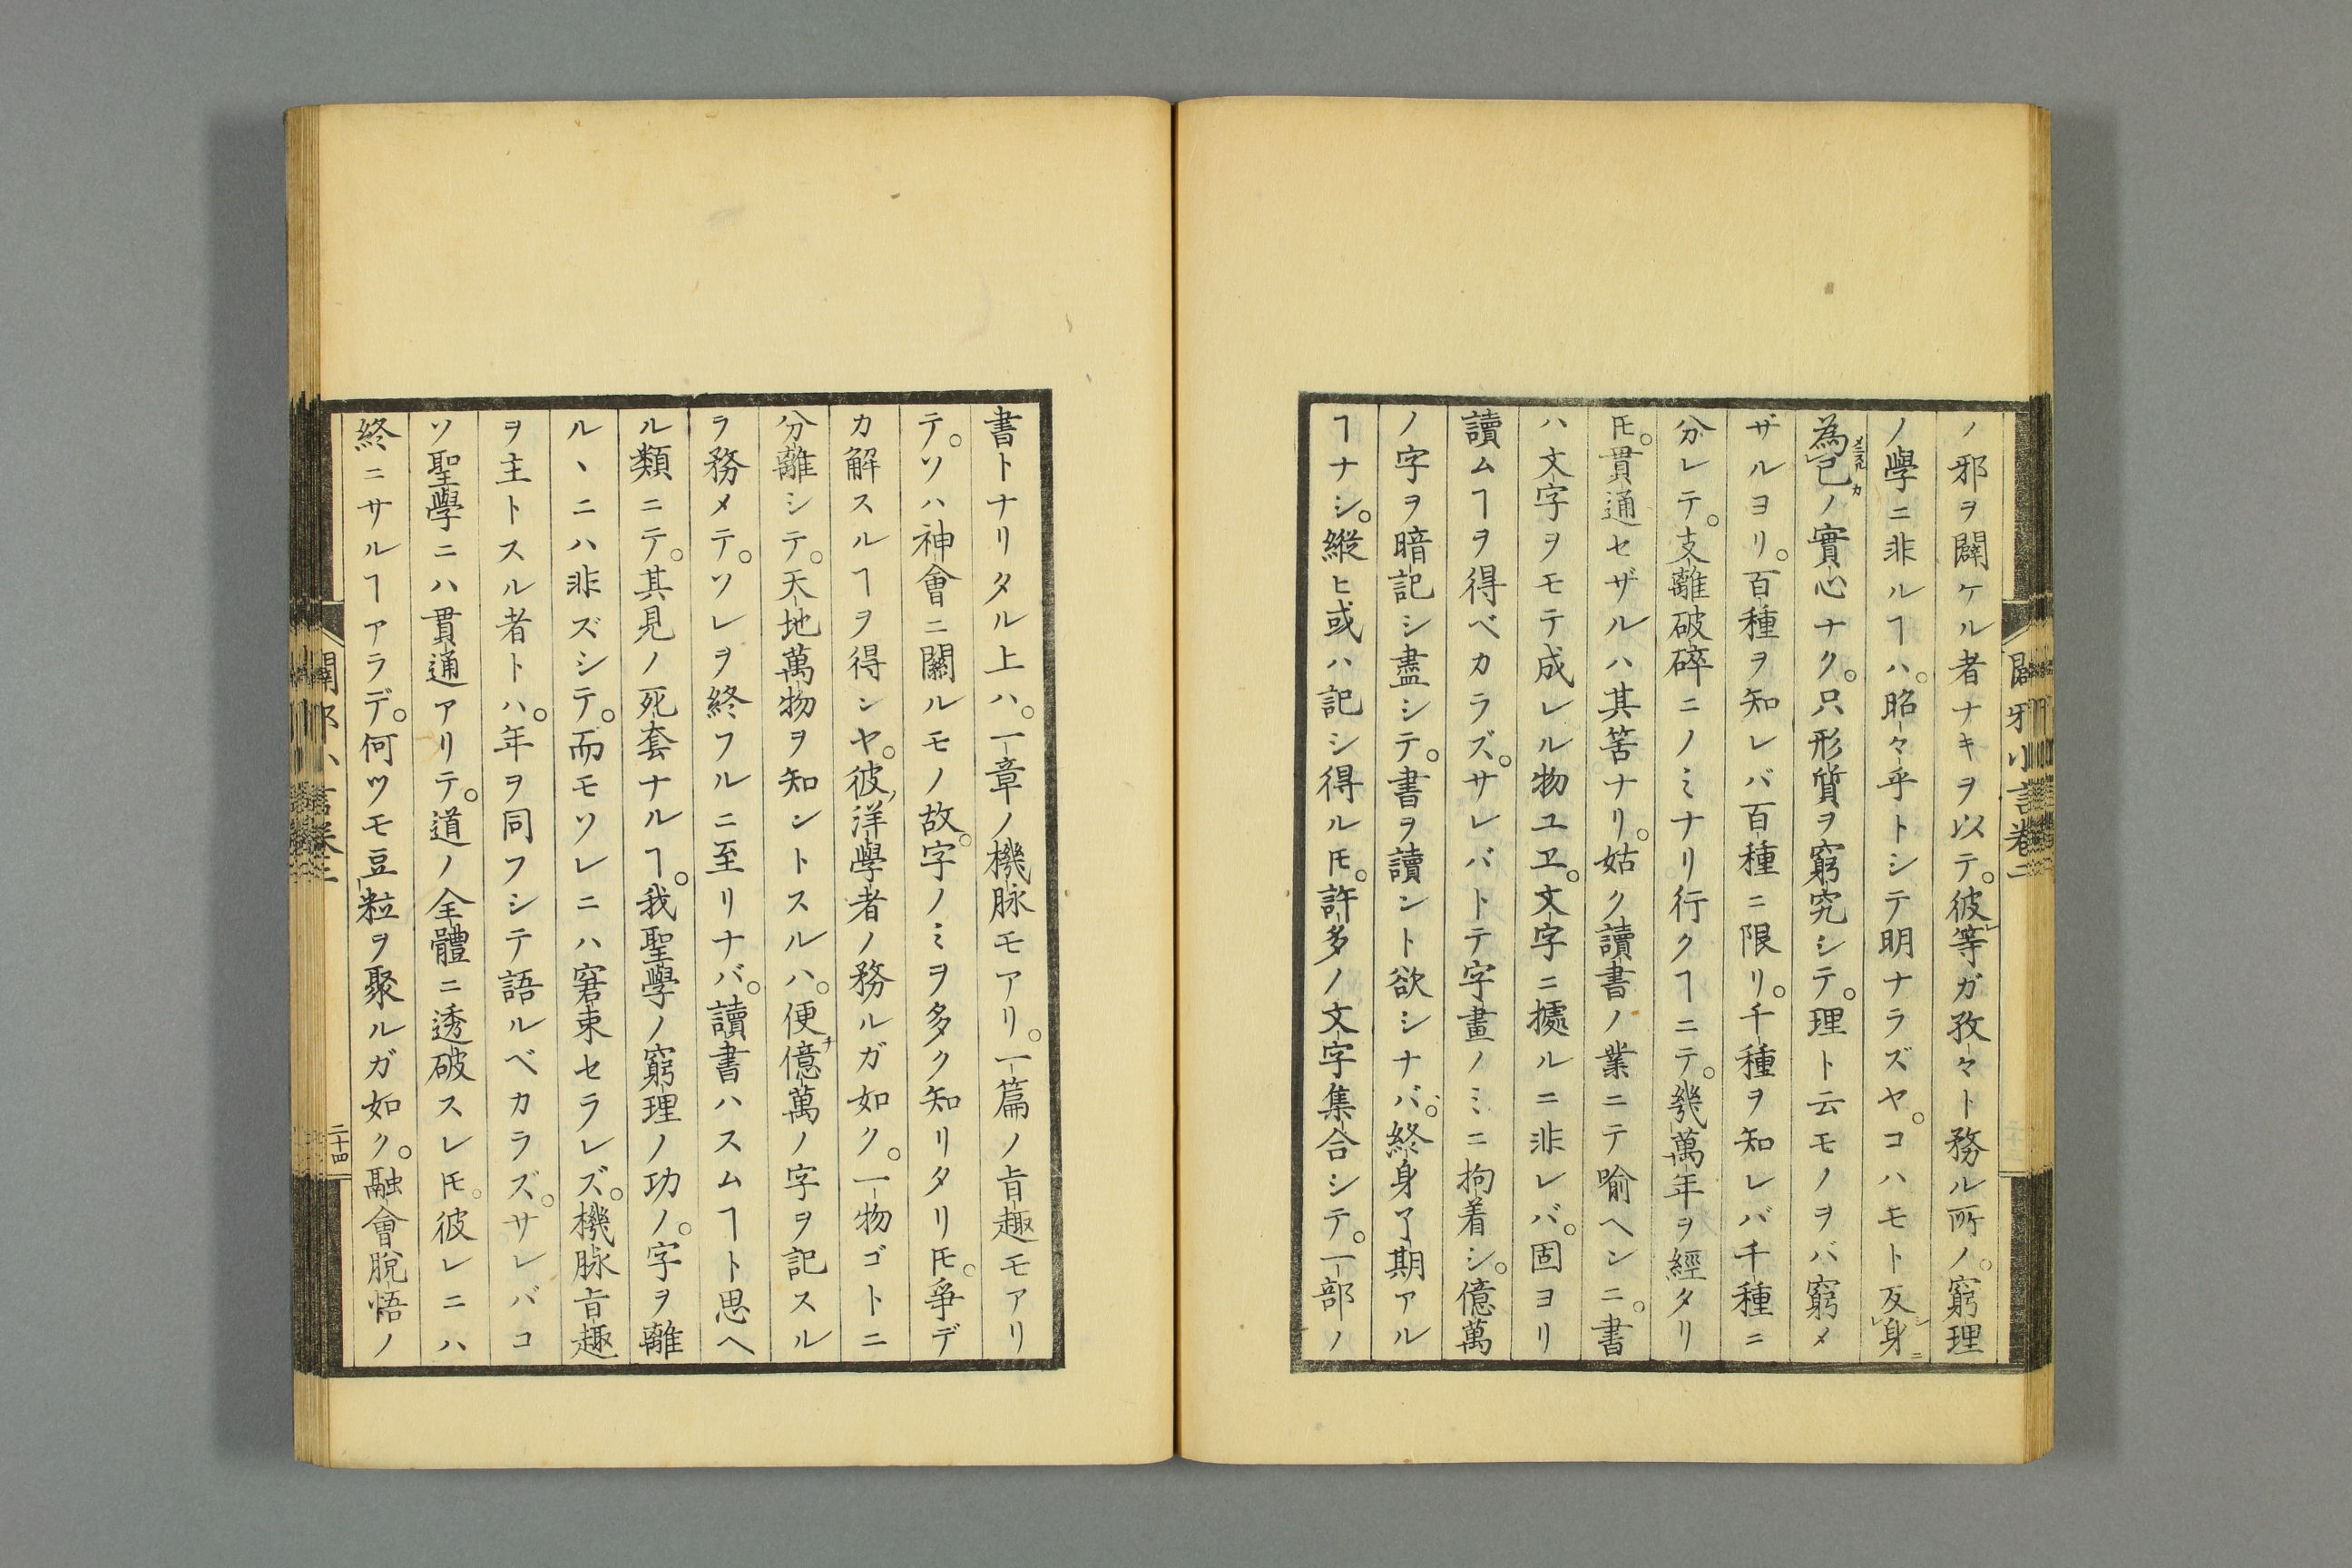 ノ邪ヲ闢ケル者ナキヲ以テ。彼等ガ孜々ト務ル所ノ。窮理
ノ學ニ非ルヿハ。昭々乎トシテ明ナラズヤ。コハモト反身
為己ノ實心ナク。只形質ヲ窮究シテ。理ト云モノヲバ窮メ
ザルヨリ。百種ヲ知レバ百種ニ限リ。千種ヲ知レバ千種ニ
分レテ。支離破碎ニノミナリ行クヿニテ。幾萬年ヲ經タリ
𪜈。貫通セザルハ其筈ナリ。姑ク讀書ノ業ニテ喩ヘンニ。書
ハ文字ヲモテ成レル物ユヱ。文字ニ據ルニ非レバ。固ヨリ
讀ムヿヲ得ベカラズ。サレバトテ字畫ノミニ拘着シ。億萬
ノ字ヲ暗記シ盡シテ。書ヲ讀ント欲シナバ。終身了期アル
ヿナシ。縱ヒ或ハ記シ得ル𪜈。許多ノ文字集合シテ。一部ノ
書トナリタル上ハ。一章ノ機脉モアリ。一篇ノ旨趣モアリ
テ。ソハ神會ニ關ルモノ故。字ノミヲ多ク知リタリ𪜈。爭デ
カ解スルヿヲ得ンヤ。彼洋學者ノ務ルガ如ク。一物ゴトニ
分離シテ。天地萬物ヲ知ントスルハ。便億萬ノ字ヲ記スル
ヲ務メテ。ソレヲ終フルニ至リナバ。讀書ハスムヿト思ヘ
ル類ニテ。其見ノ死套ナルヿ。我聖學ノ窮理ノ功ノ。字ヲ離
ルヽニハ非ズシテ。而モソレニハ窘束セラレズ。機脉旨趣
ヲ主トスル者トハ。年ヲ同フシテ語ルベカラズ。サレバコ
ソ聖學ニハ貫通アリテ。道ノ全體ニ透破スレ𪜈。彼レニハ
終ニサルヿアラデ。何ツモ豆粒ヲ聚ルガ如ク。融會脱悟ノ
二十四